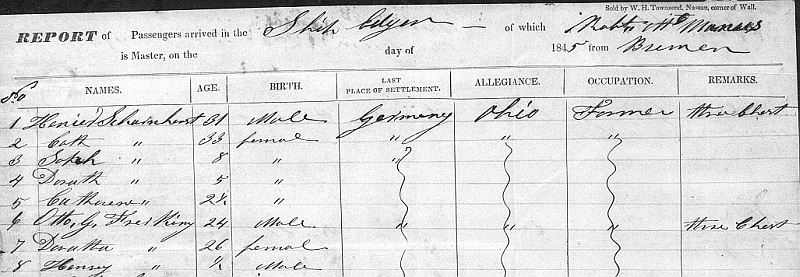 Sold by W. H. Townsend, Nassau, corner of Wall.
REPORT of Passengers arrived in the Ship Edgen of which Robt. McManaes
is Master, on the day of 1845 from Bremen
No NAMES. AGE. BIRTH. LAST PLACE OF SETTLEMENT. ALLEGIANCE. OCCUPATION. REMARKS.
1 Scharnhorst 31 Male Germany Ohio Farmer three Chest
2 Cath " 33 female " " "
3 Soph " 8 " "
4 Dorath " 5 "
5 Catharine " 2½ "
6 Otto G. Freiking 24 Male " " " three Chest
7 Doratha " 26 female " "
8 Henrey " ½ Male " "